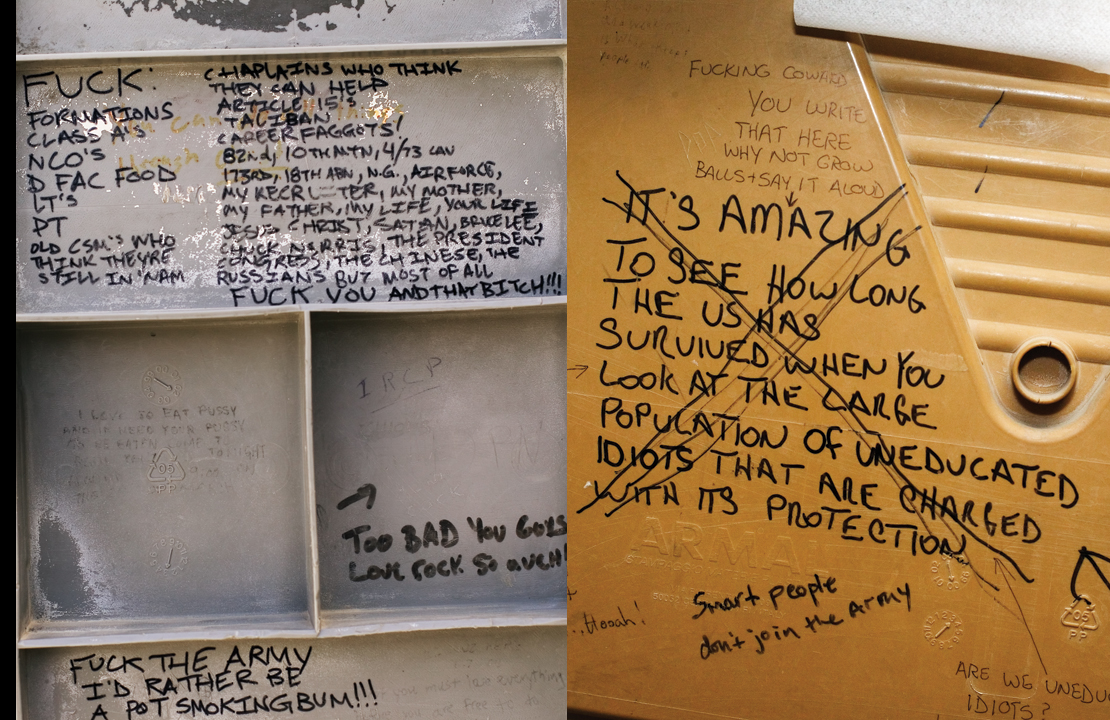 FUCK:
FORMATIONS
CLASS A'S
NCO'S
D FAC FOOD
LT'S
PT
OLD CSM'S WHO
THINK THEY'RE
STILL IN 'NAM
CHAPLAINS WHO THINK
THEY CAN HELP
ARTICLE 15'S
TALIBAN
CAREER FAGGOTS!
82nd, 10TH MTN, 4/73 CAV
173RD, 18TH ABN, N.G., AIRFORCE,
MY RECRUITER, MY MOTHER,
MY FATHER, MY LIFE, YOUR LIFE
JESUS CHRIST, SATAN, BRUCE LEE,
CHUCK NORRIS, THE PRESIDENT
CONGRESS, THE CHINESE, THE
RUSSIANS BUT MOST OF ALL
FUCK YOU AND THAT BITCH!!!
I LOVE TO EAT PUSSY
AND IF NEED YOUR PUSSY
BE EATEN
TONIGHT
05
PP
1 RCP
TOO BAD YOU GUYS
LOVE COCK SO MUCH!
FUCK THE ARMY
I'D RATHER BE
A POT SMOKING BUM!!!
you must lose everything
you are free to do
FUCKING COWARD
YOU WRITE
THAT HERE
WHY NOT GROW
BALLS + SAY IT ALOUD
IT'S AMAZING
TO SEE HOW LONG
THE US HAS
SURVIVED WHEN YOU
LOOK AT THE LARGE
POPULATION OF UNEDUCATED
IDIOTS THAT ARE CHARGED
WITH ITS PROTECTION
ARMAL
Smart people
don't join the Army
Hooah!
05
PP
ARE WE UNEDU
IDIOTS?